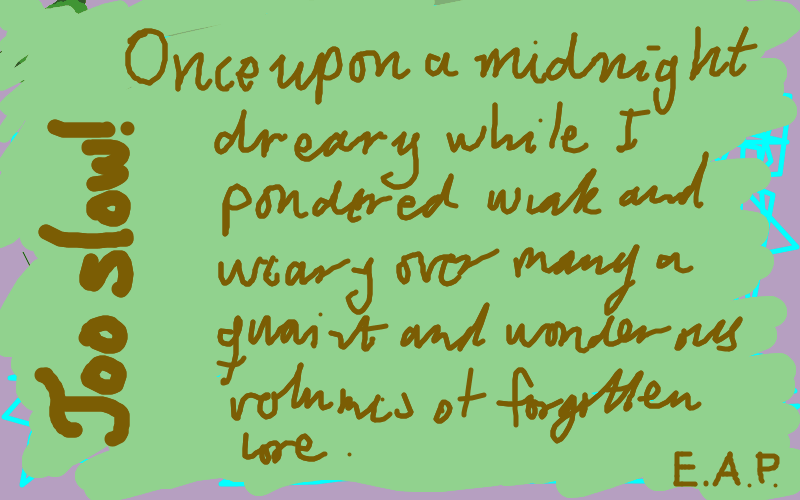 Too slow!
Once upon a midnight
dreary while I
pondered weak and
weary over many a
quaint and wonderous
volumes of forgotten
lore.
E.A.P.